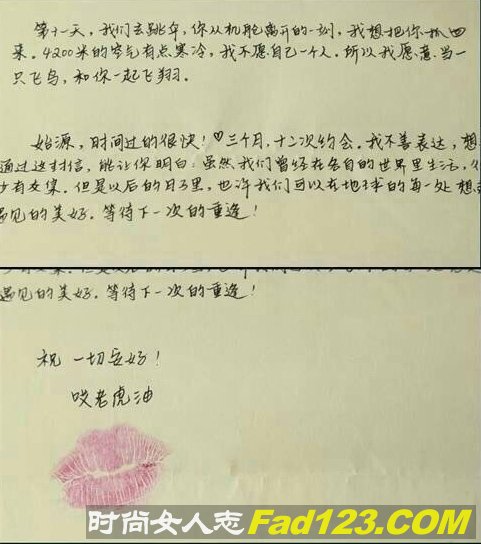 第十一天，我们去跳伞，你从机舱离开的一刻，我想把你抓回
来。4200米的空气有点寒冷，我不愿自己一个人。所以我愿意当一
只飞鸟，和你一起飞翔。
始源，时间过的很快！♡三个月，十二次约会。我不善表达，想
通过这封信，能让你明白：虽然我们曾经在各自的世界里生活，
少有交集。但是以后的日子里，也许我们可以在地球的每一处 想
遇见的美好。等待下一次的重逢！
遇见的美好。等待下一次的重逢！
祝 一切安好！
咬老虎油
时尚女人志 Fad123.COM